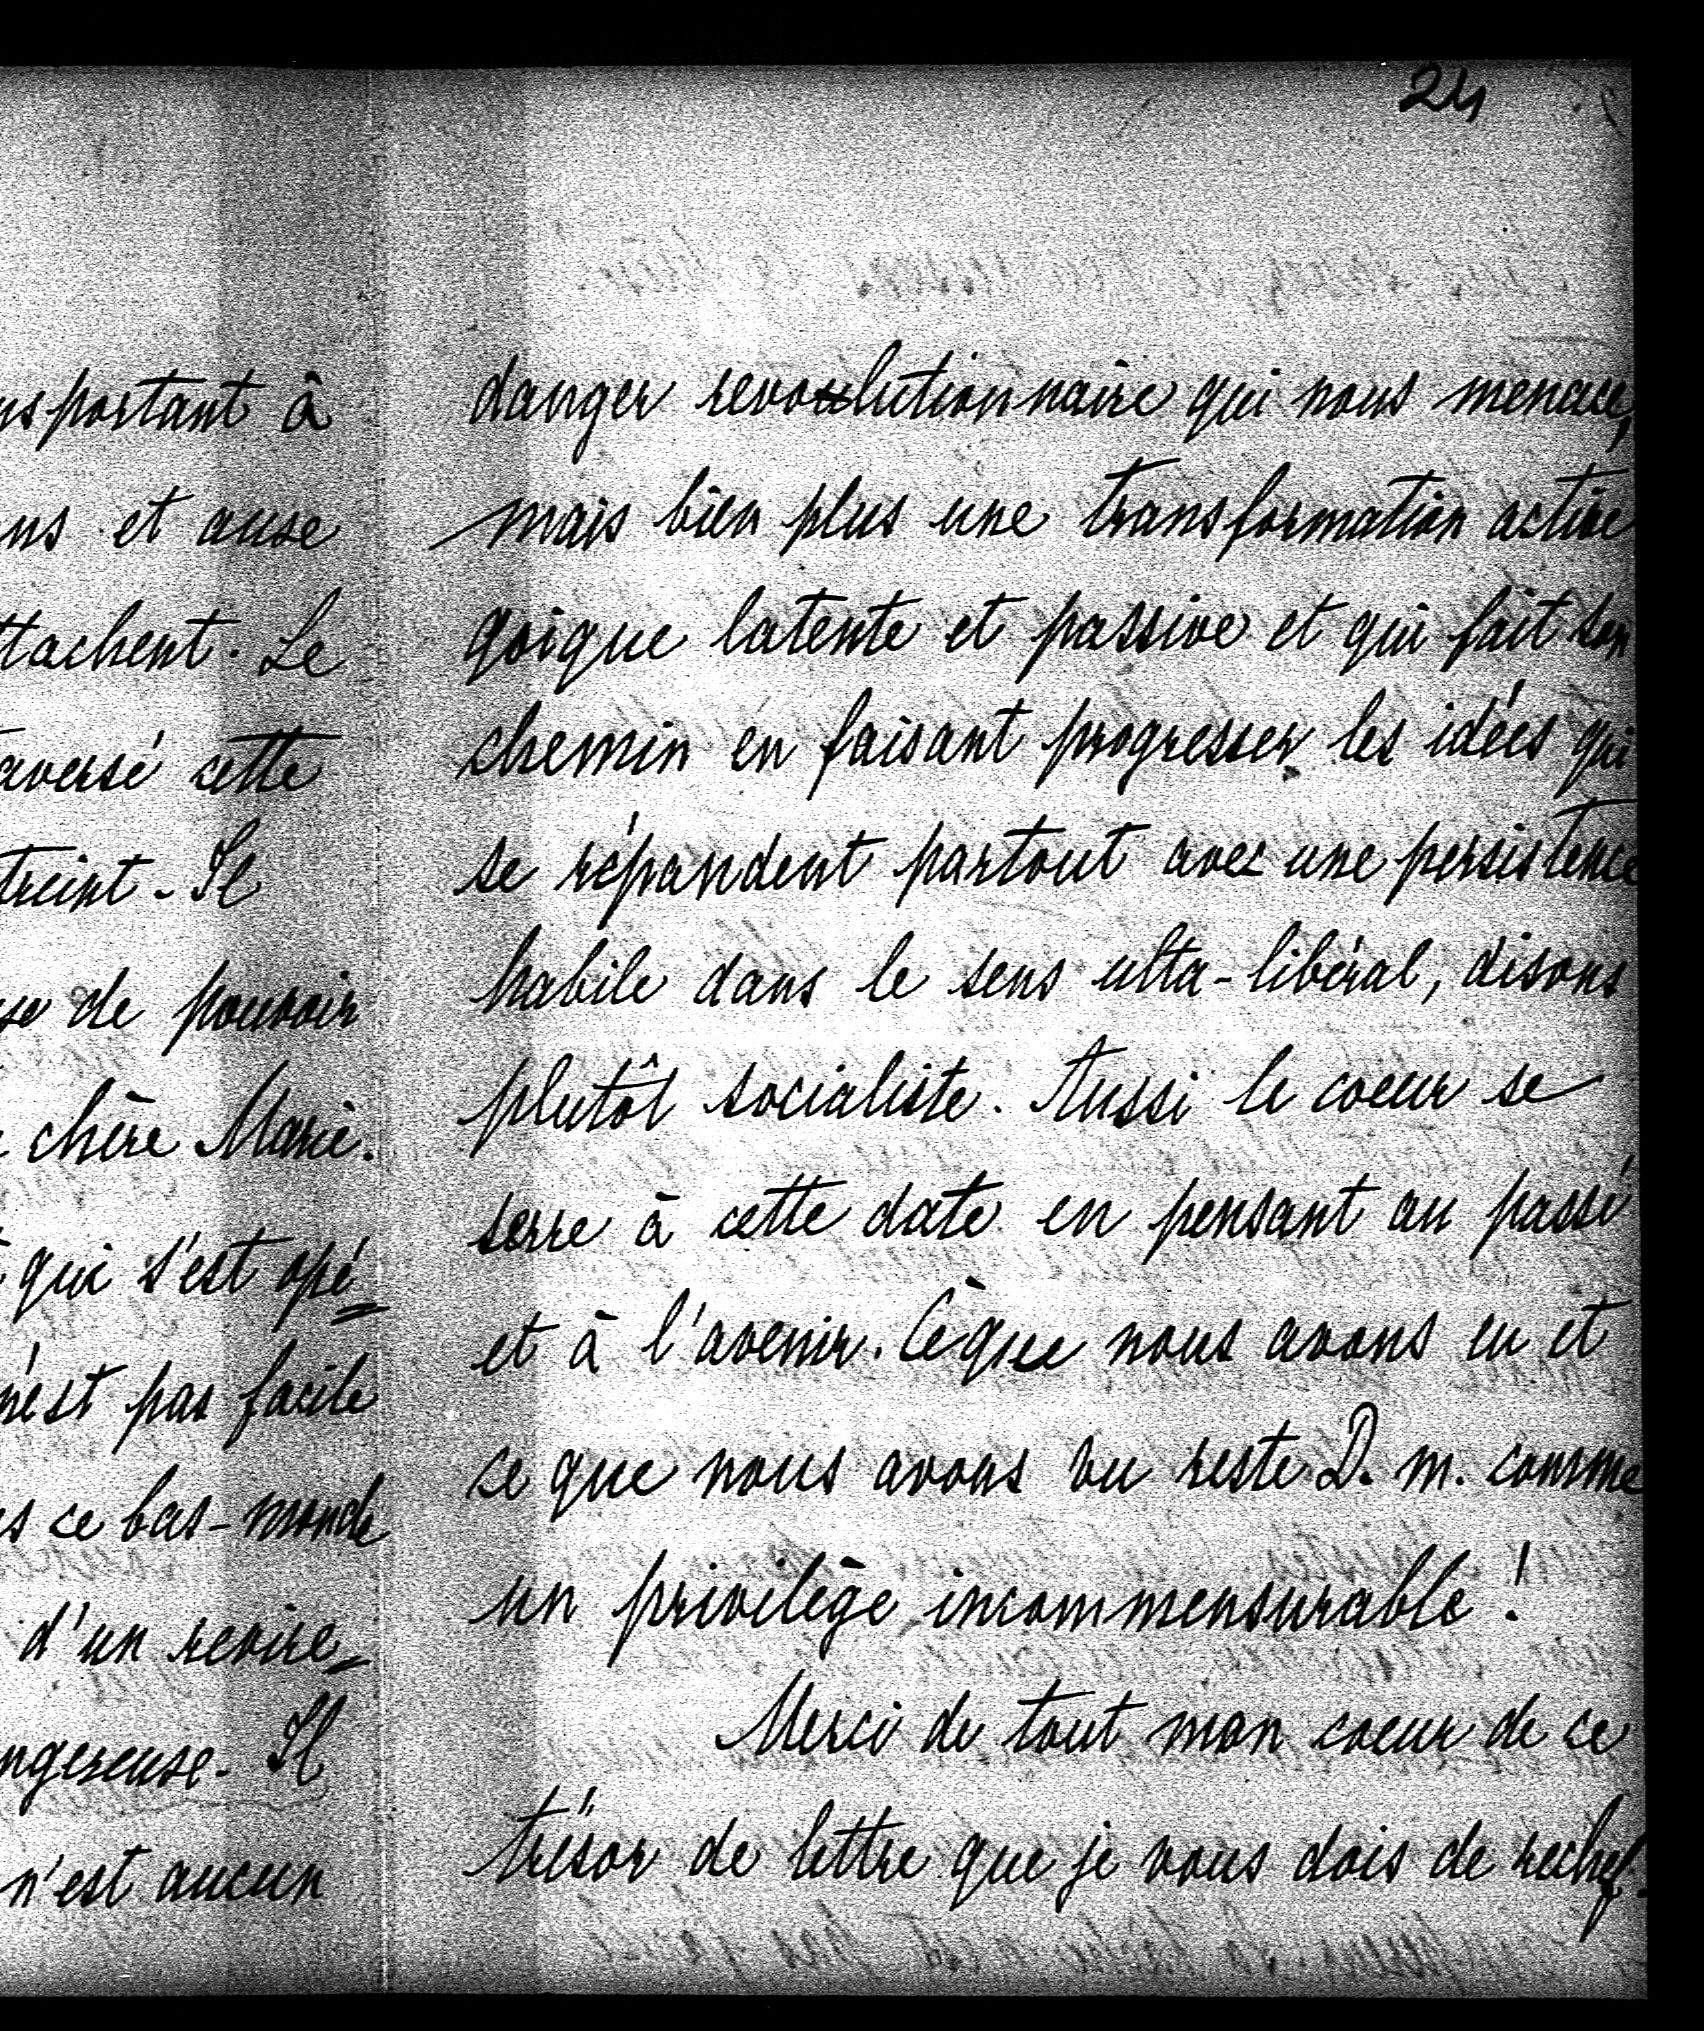 24
nsportant à
ns et ause
ttachent. Le
aversé cette
treint. Il
se de pouvoir
chère Marie.
qui s'est opé=
n'est pas facile
s ce bas-monde
d'un revire=
ngereuse. Il
n'est aucun
danger revolutionnaire qui nous menace,
mais bien plus une transformation active
qoique latente et passive et qui fait son
chemin en faisant progresser les idées qui
se répandent partout avec une persistence
habile dans le sens ulta-libéral, disons
plutôt socialiste. Aussi le coeur se
serre à cette date en pensant au passé
et à l'avenir. Ce que nous avons eu et
ce que nous avons vu reste D. m. comme
un privilège incommensurable !
Merci de tout mon coeur de ce
trésor de lettre que je vous dois de rechef.